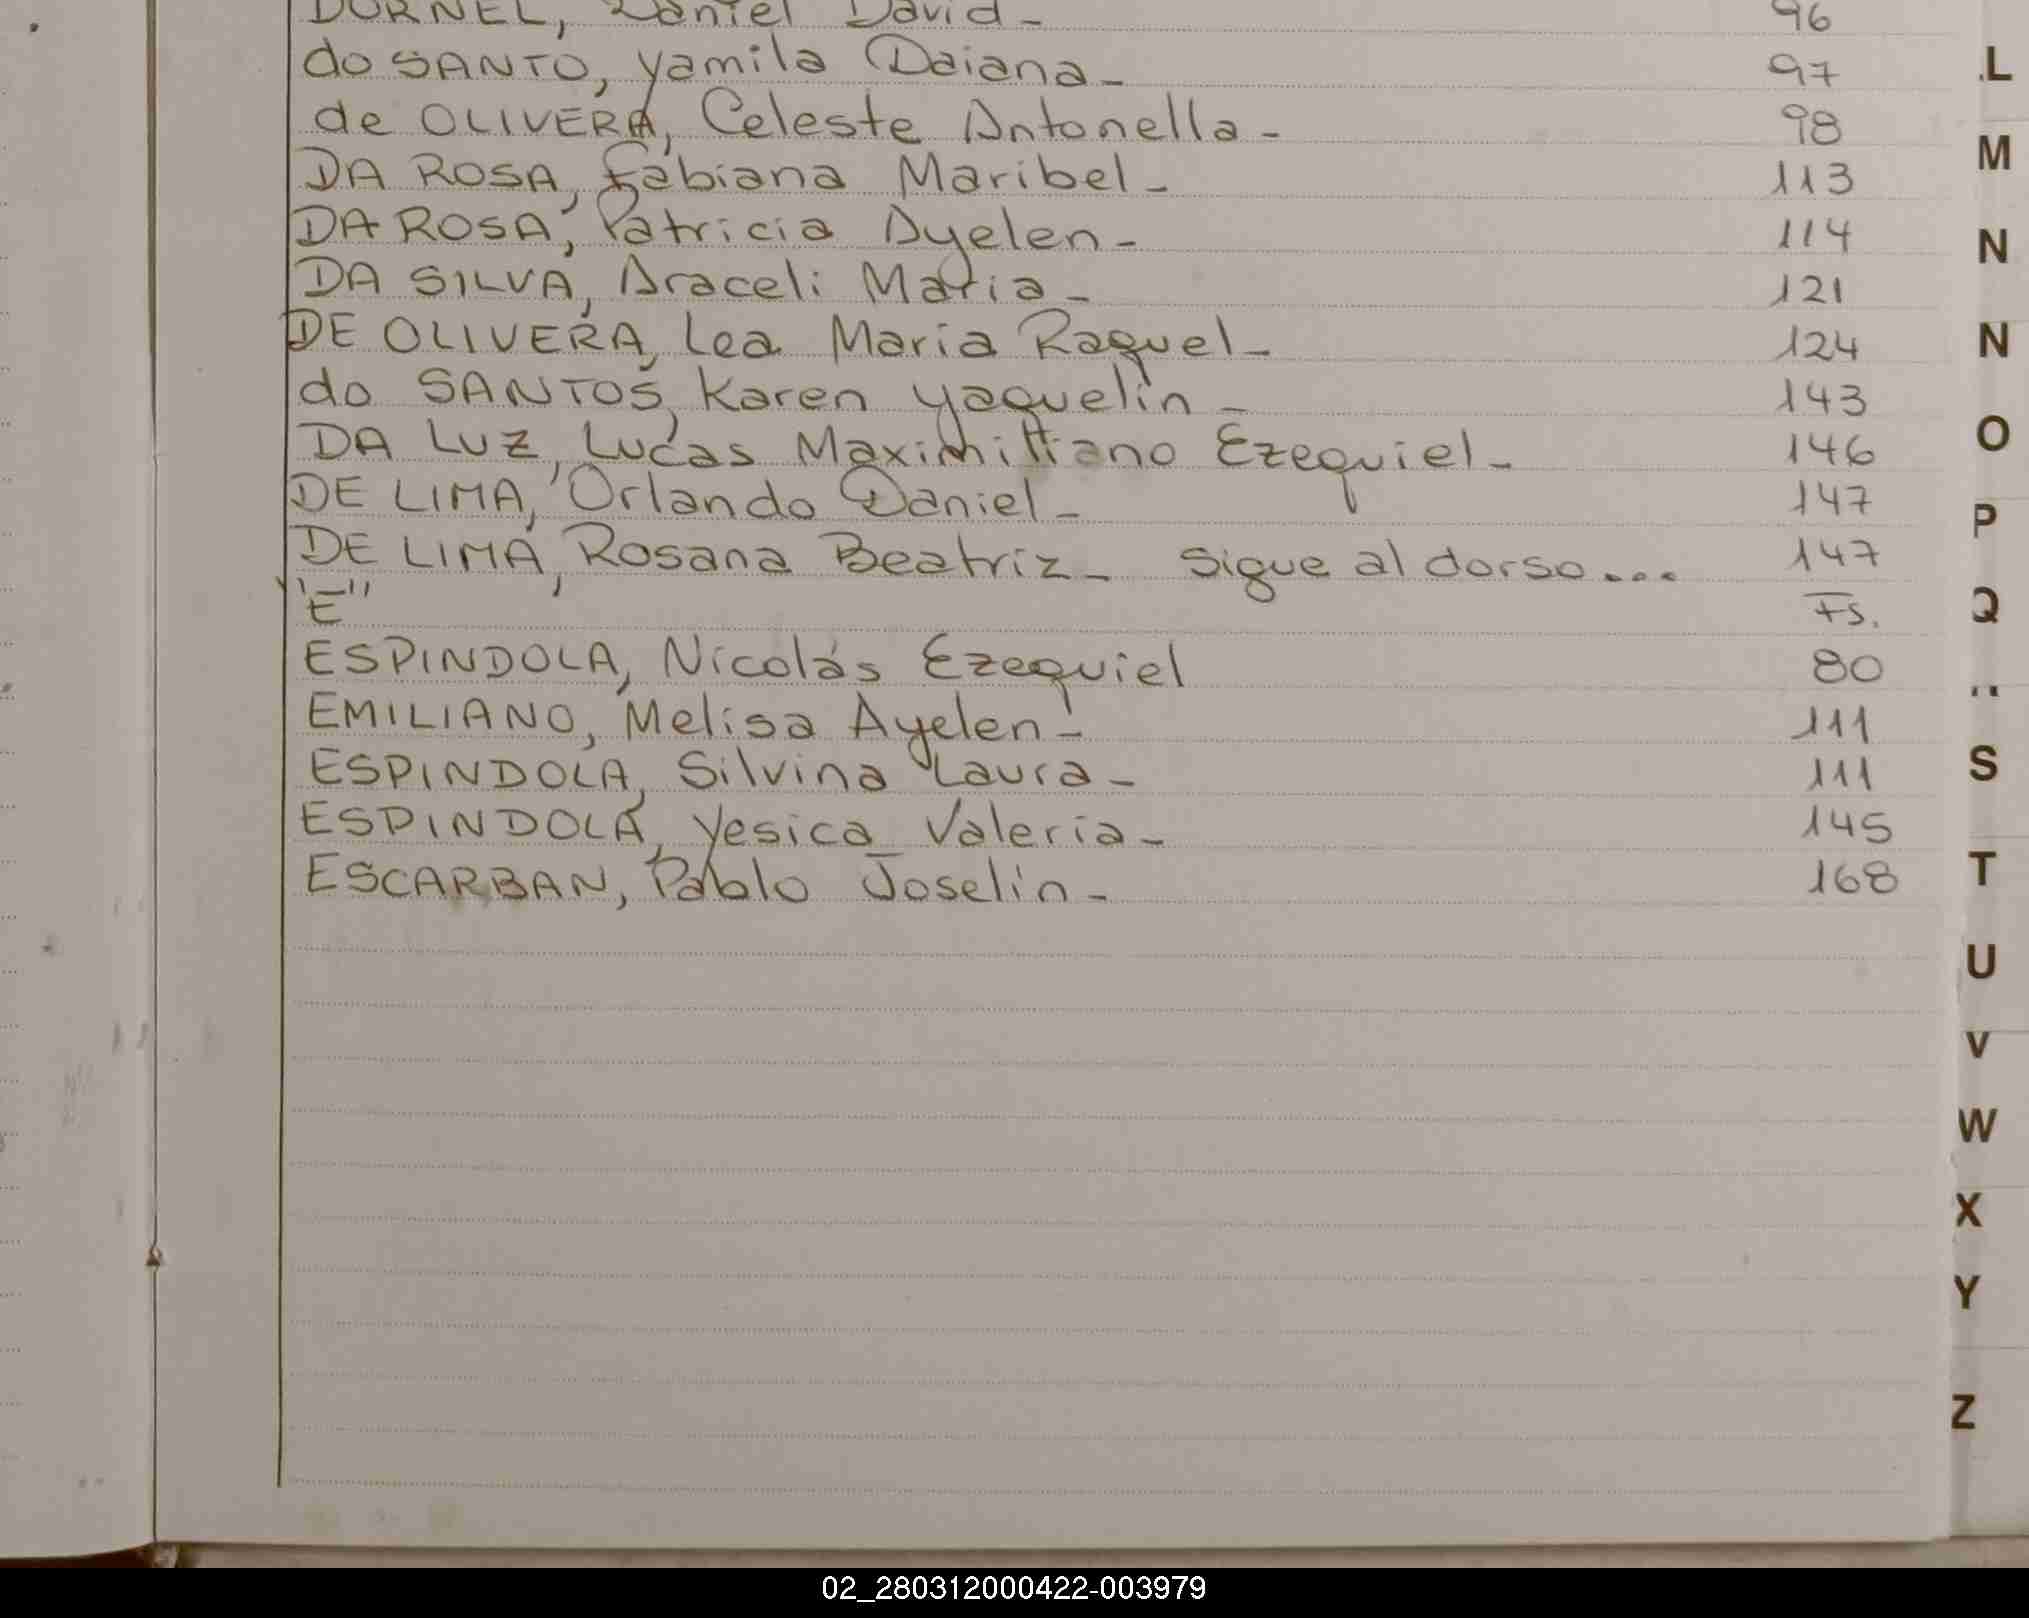 DORNEL, Daniel David - 96
do SANTO, Yamila Daiana - 97
de OLIVERA, Celeste Antonella - 98
DA ROSA, Fabiana Maribel - 113
DA ROSA, Patricia Ayelen - 114
DA SILVA, Araceli Maria - 121
DE OLIVERA, Lea Maria Raquel - 124
do SANTOS, Karen Yaquelin - 143
DA LUZ, Lucas Maximiliano Ezequiel - 146
DE LIMA, Orlando Daniel - 147
DE LIMA, Rosana Beatriz - Sigue al dorso... 147
"E" Fs.
ESPINDOLA, Nicolás Ezequiel 80
EMILIANO, Melisa Ayelen - 111
ESPINDOLA, Silvina Laura - 111
ESPINDOLA, Yesica Valeria - 145
ESCARBAN, Pablo Joselin - 168
L
M
N
N
O
P
Q
S
T
U
V
W
X
Y
Z
02_280312000422-003979